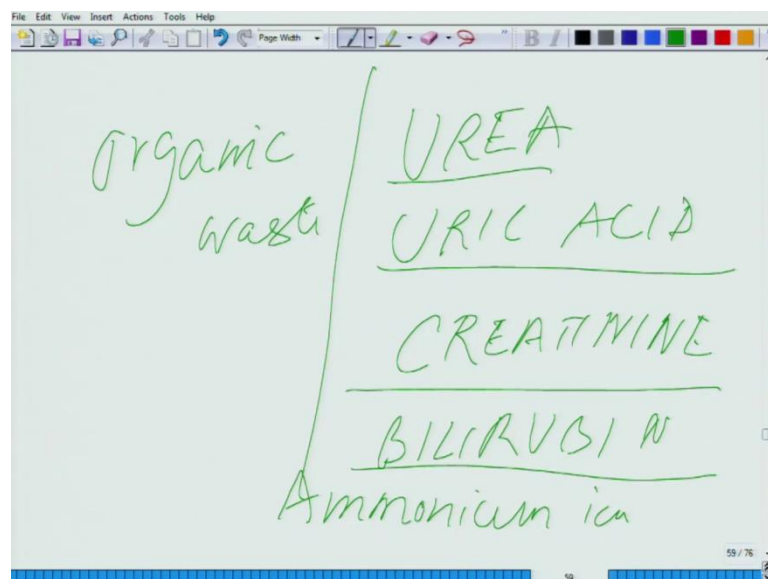 File Edit View Insert Actions Tools Help
Page Width
B I
organic
waste
UREA
URIC ACID
CREATININE
BILIRUBIN
Ammonium ion
59 / 76
59